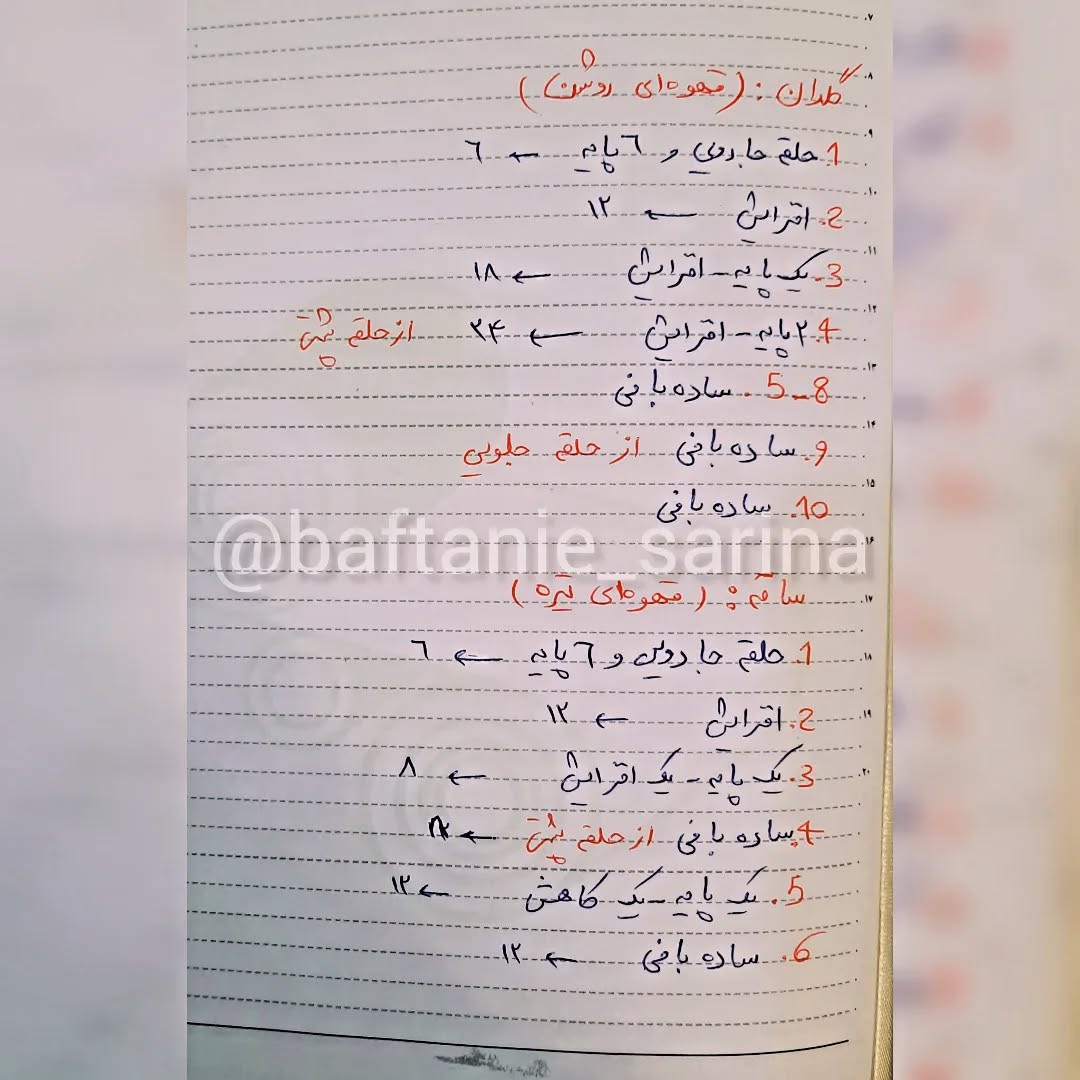 ۷
۸
گلدان : (قهوه‌ای روشن)
۹
1 حلقه جادویی و ٦ پایه ← ٦
۱۰
2. افزایش ← ۱۲
۱۱
3. یک پایه - افزایش ← ۱۸
۱۲
4. ۲ پایه - افزایش ← ۲۴ از حلقه پشتی
۱۳
5-8. ساده بافی
۱۴
9. ساده بافی از حلقه جلویی
۱۵
10. ساده بافی
۱۶
@baftanie_sarina
۱۷
ساقه : (قهوه‌ای تیره)
۱۸
1. حلقه جادویی و ٦ پایه ← ٦
۱۹
2. افزایش ← ۱۲
۲۰
3. یک پایه - یک افزایش ← ۸
4. ساده بافی از حلقه پشتی ←
5. یک پایه - یک کاهش ← ۱۲
6. ساده بافی ← ۱۲